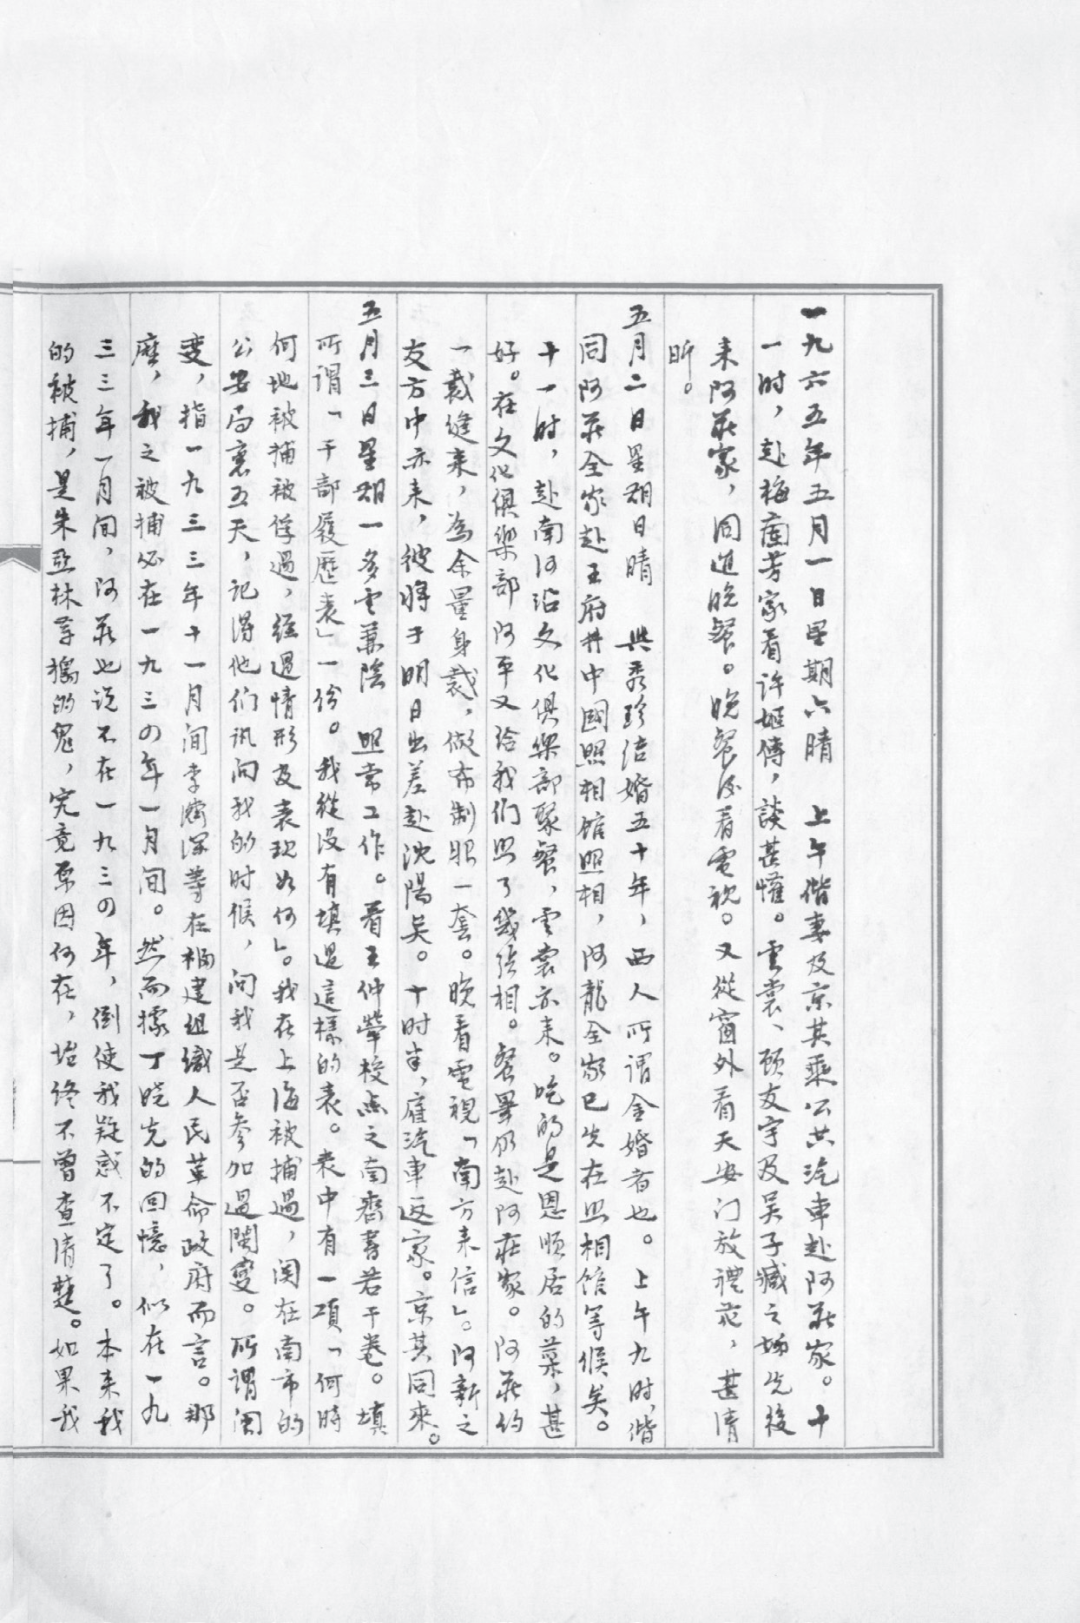 一九六五年五月一日星期六晴　上午偕妻及京其乘公共汽車赴阿莊家。十
一时，赴梅蘭芳家看许姬傳，談甚懽。雲裳、顾友宇及吴子臧之先後
来阿莊家，同進晚餐。晚餐后看電視。又從窗外看天安门放禮花，甚清
昕。
五月二日星期日晴　與秀珍结婚五十年，西人所谓金婚者也。上午九时，偕
同阿莊全家赴王府井中國照相館照相，阿龍全家已先在照相馆等候矣。
十一时，赴南河沿文化俱樂部聚餐，雲裳亦来。吃的是恩順居的菜，甚
好。在文化俱樂部阿平又给我们照了幾张相。餐畢仍赴阿莊家。阿莊约
一裁缝来，為余量身裁，做布制服一套。晚看電視「南方来信」。阿新之
友方中亦来，彼將于明日出差赴沈陽矣。十时半，雇汽車返家。京其同來。
五月三日星期一多雲兼陰　照常工作。看王仲犖校点之南齊書若干卷。填
所谓「干部履歷表」一份。我從没有填過這樣的表。表中有一項「何時
何地被捕被俘過，经過情形及表现如何」。我在上海被捕過，関在南市的
公安局裏五天，记得他们讯问我的时候，问我是否参加過閩变。所谓閩
变，指一九三三年十一月间李濟深等在福建组織人民革命政府而言。那
麽，我之被捕必在一九三四年一月间。然而據丁晓先的回憶，似在一九
三三年一月间，阿莊也说不在一九三四年，倒使我疑惑不定了。本来我
的被捕，是朱亞林等搗的鬼，究竟原因何在，始终不曾查清楚。如果我